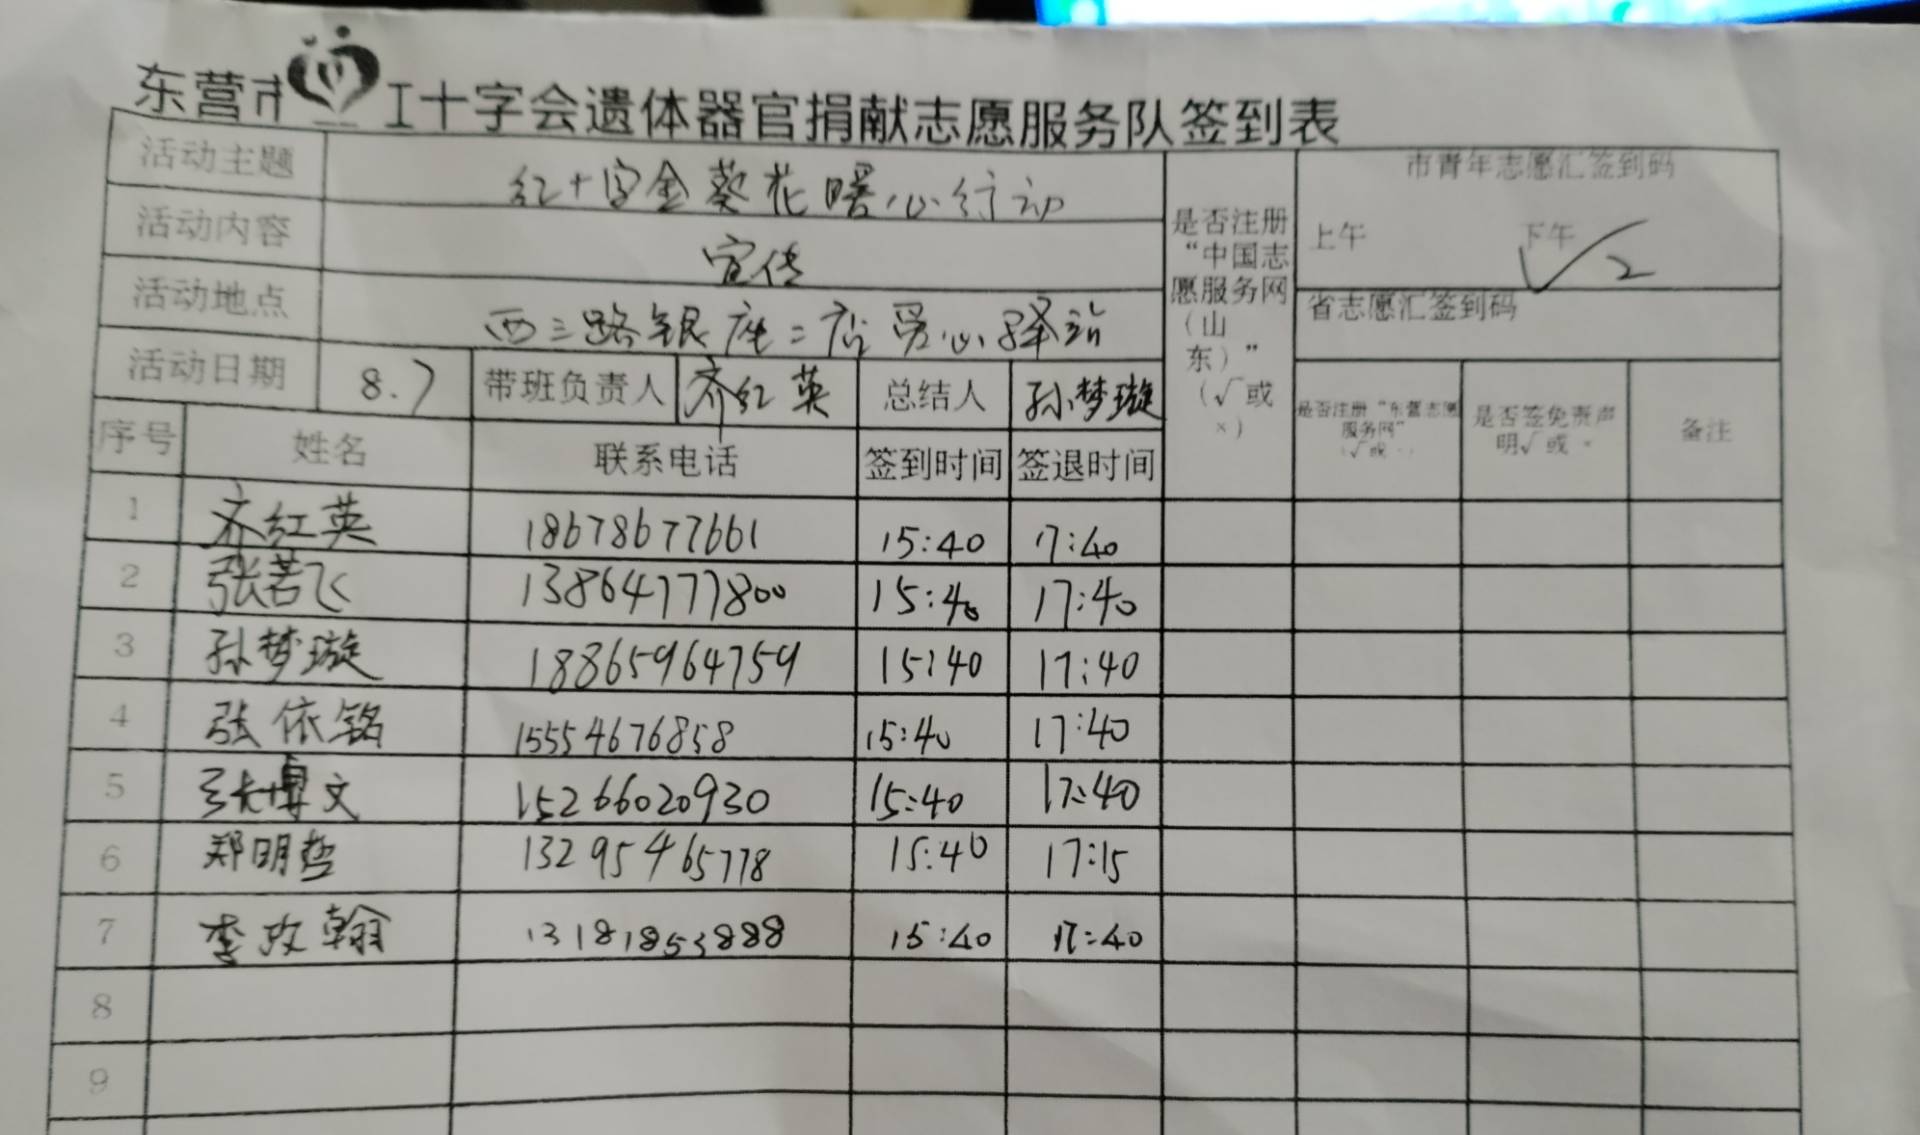 东营市红十字会遗体器官捐献志愿服务队签到表
活动主题 红十字金葵花暖心行动
活动内容 宣传
活动地点 西三路银座二店爱心驿站
活动日期 8.7 带班负责人 齐红英 总结人 孙梦璇
是否注册
“中国志
愿服务网
(山
东)”
(√或
×)
市青年志愿汇签到码
上午 下午 √2
省志愿汇签到码
是否注册“东营志愿
服务网”
是否签免责声
明√或×
备注
序号 姓名 联系电话 签到时间 签退时间
1 齐红英 18678677661 15:40 17:40
2 张若飞 13864777800 15:40 17:40
3 孙梦璇 18865964759 15:40 17:40
4 张依铭 15554676858 15:40 17:40
5 张博文 15266020930 15:40 17:40
6 郑明哲 13295465778 15:40 17:15
7 李政翰 13181853888 15:40 17:40
8
9